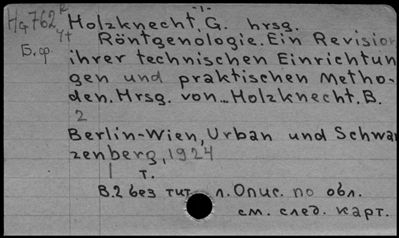 -1-
Hg762 R Holzknecht, G. hrsg.
4t Röntgenologie. Ein Revision
Б.ф. ihrer technischen Einrichtun
gen und praktischen Metho-
den. Hrsg. von... Holzknecht. B.
2
Berlin-Wien, Urban und Schwar
zenberg, 1924
1 т.
В.2 без тит. л. Опис. по обл.
см. след. карт.